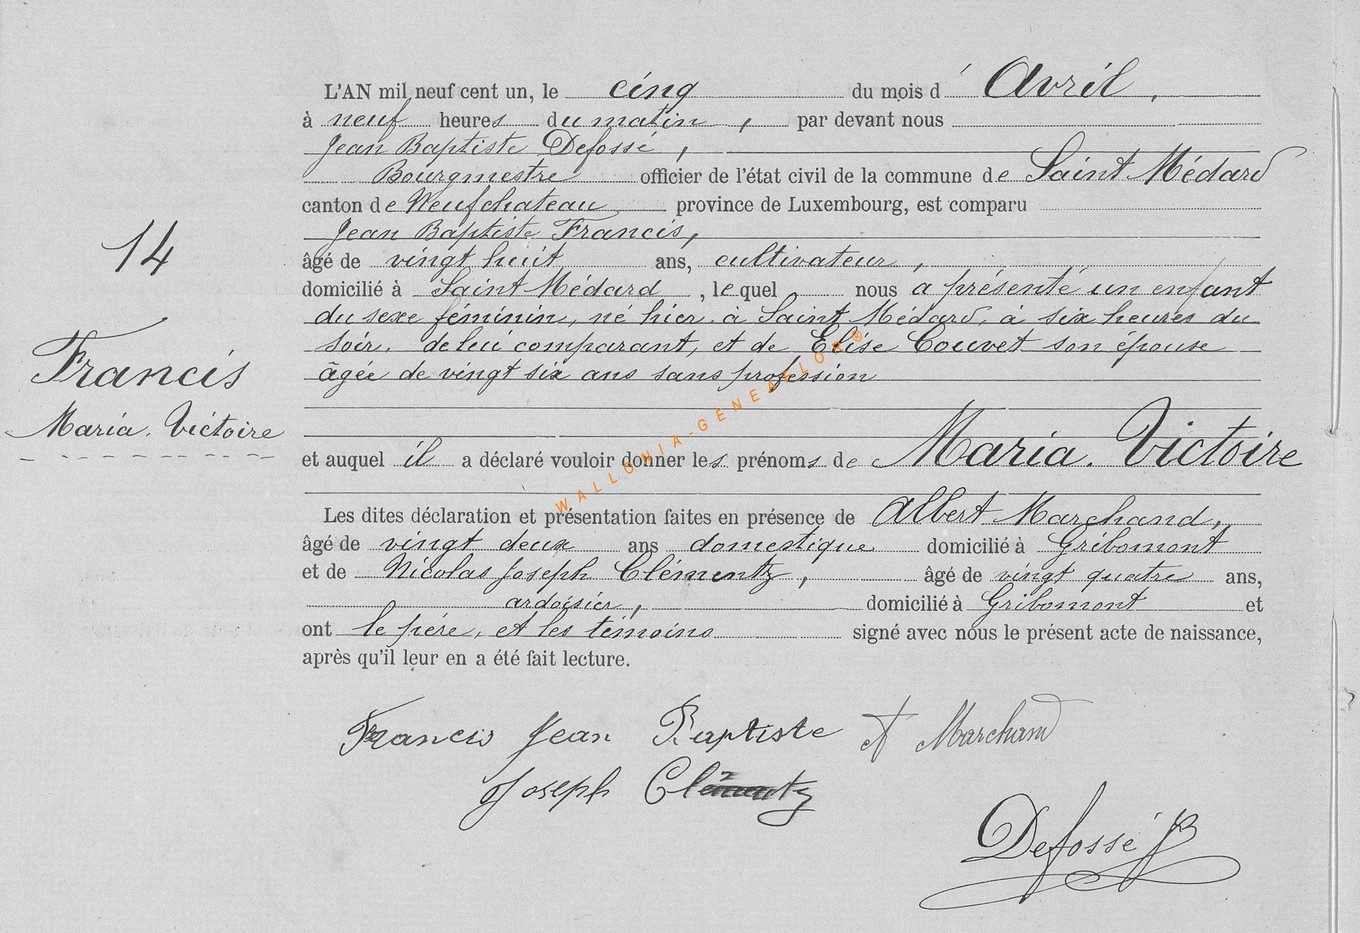 L'AN mil neuf cent un, le cinq du mois d' Avril,
à neuf heures du matin, par devant nous
Jean Baptiste Defossé,
Bourgmestre officier de l'état civil de la commune de Saint Médard
canton de Neufchateau province de Luxembourg, est comparu
Jean Baptiste Francis,
14
âgé de vingt huit ans, cultivateur,
domicilié à Saint Médard, lequel nous a présenté un enfant
du sexe féminin, né hier à Saint Médard, à six heures du
soir, de lui comparant, et de Elise Couvet son épouse
âgée de vingt six ans sans profession
Francis
Maria. Victoire
et auquel il a déclaré vouloir donner les prénoms de Maria. Victoire
WALLONIA-GENEALLOG®
Les dites déclaration et présentation faites en présence de Albert Marchand,
âgé de vingt deux ans domestique domicilié à Gribomont
et de Nicolas Joseph Clémentz, âgé de vingt quatre ans,
ardoisier, domicilié à Gribomont et
ont le père, et les témoins signé avec nous le présent acte de naissance,
après qu'il leur en a été fait lecture.
Francis Jean Baptiste A Marchand
Joseph Clémentz
Defossé JB